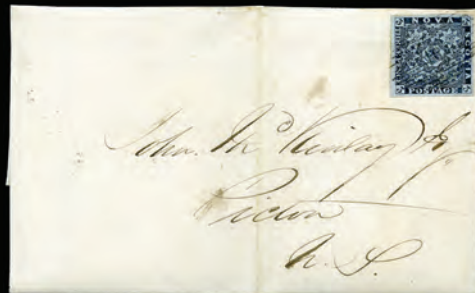 NOVA
SCOTIA
POSTAGE
John. Mᶜ Kinlay
Pictou
N. S.